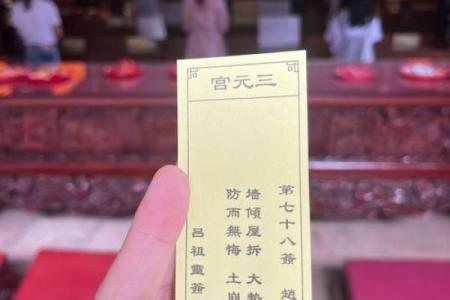 三元宮
第七十八簽 趙
墻傾屋拆 大勢
防而無悔 土崩
呂祖靈簽